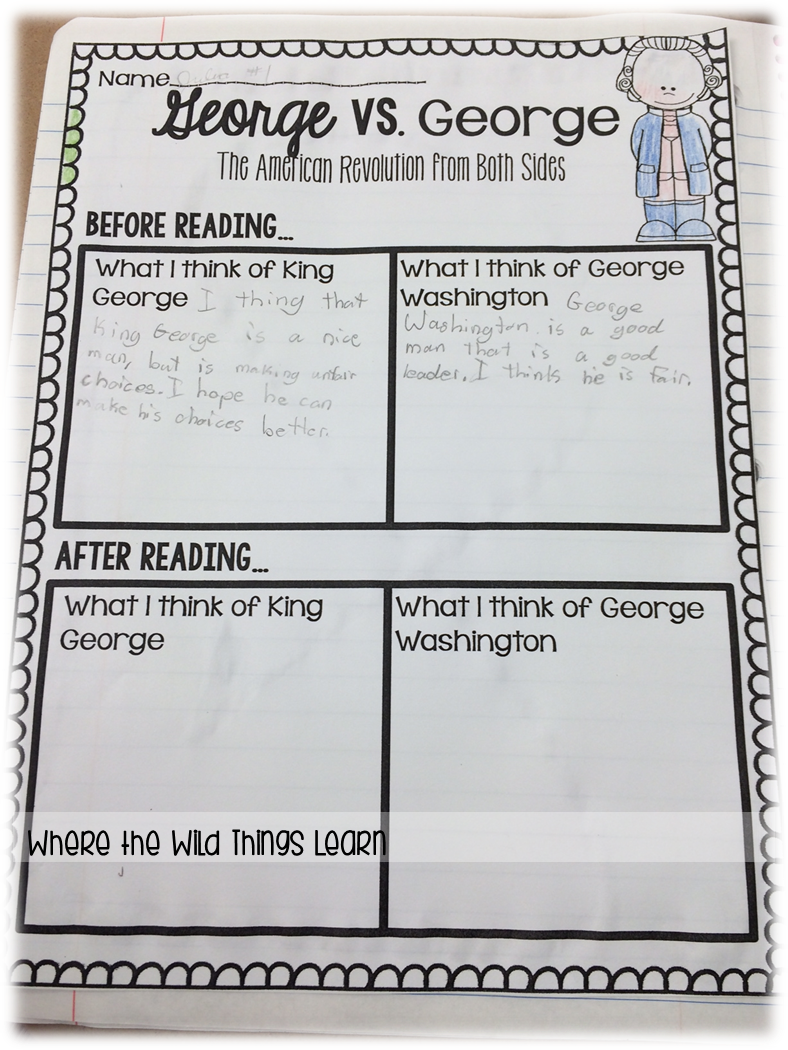 Name #1
George VS. George
The American Revolution From Both Sides
BEFORE READING...
What I think of King
George I thing that
King George is a nice
man, but is making unfair
choices. I hope he can
make his choices better.
What I think of George
Washington George
Washington is a good
man that is a good
leader. I thinks he is fair.
AFTER READING...
What I think of King
George
What I think of George
Washington
Where the Wild Things Learn